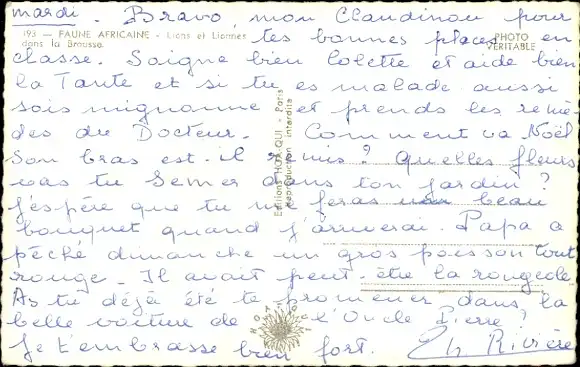 mardi. Bravo, mon Claudinou pour
193 — FAUNE AFRICAINE - Lions et Lionnes
dans la Brousse
tes bonnes places en
PHOTO
VÉRITABLE
classe. Soigne bien Colette et aide bien
la Tante et si tu es malade aussi
sois mignonne et prends les remè-
des du Docteur. Comment va Noël
Son bras est-il remis? Quelles fleurs
vas tu semer dans ton jardin?
J'espère que tu me feras un beau
bouquet quand j'arriverai. Papa a
pêché dimanche un gros poisson tout
rouge. Il avait peut-être la rougeole
As tu déjà été te promener dans la
belle voiture de l'Oncle Pierre?
Je t'embrasse bien fort. Ch Rivière
Editions HOA-QUI - Paris
Reproduction interdite